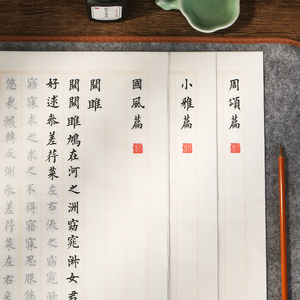 周頌篇
小雅篇
國風篇
關雎
關關雎鳩在河之洲窈窕淑女君
好逑參差荇菜左右流之窈窕淑
寤寐求之求之不得寤寐思服悠
悠哉輾轉反側參差荇菜左右采